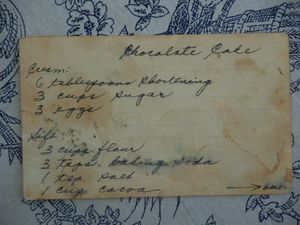 Chocolate Cake
Cream:
6 tablespoons Shortening
3 cups sugar
3 eggs
Sift:
3 cups flour
3 tsps. baking soda
1 tsp. salt
1 cup cocoa